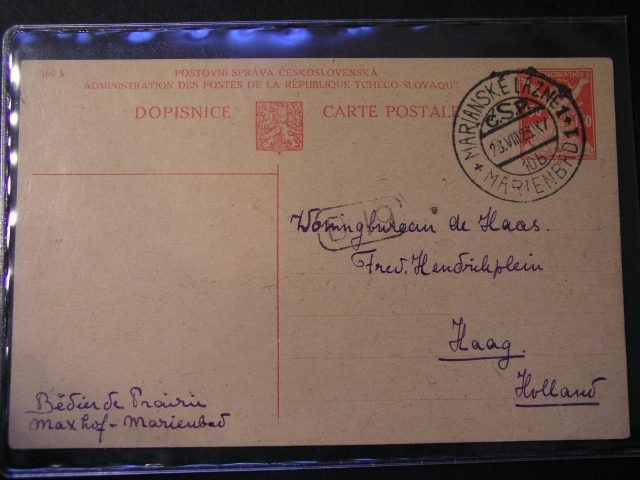 160 h
POŠTOVNÍ SPRÁVA ČESKOSLOVENSKÁ
ADMINISTRATION DES POSTES DE LA RÉPUBLIQUE TCHÉCO-SLOVAQUE
DOPISNICE CARTE POSTALE
MARIÁNSKÉ LÁZNĚ 1
Č.S.P.
MARIENBAD 1
10b
Woningbureau de Haas.
Fred. Hendrikplein
Haag.
Holland
Bédier de Prairie
Maxhof - Marienbad